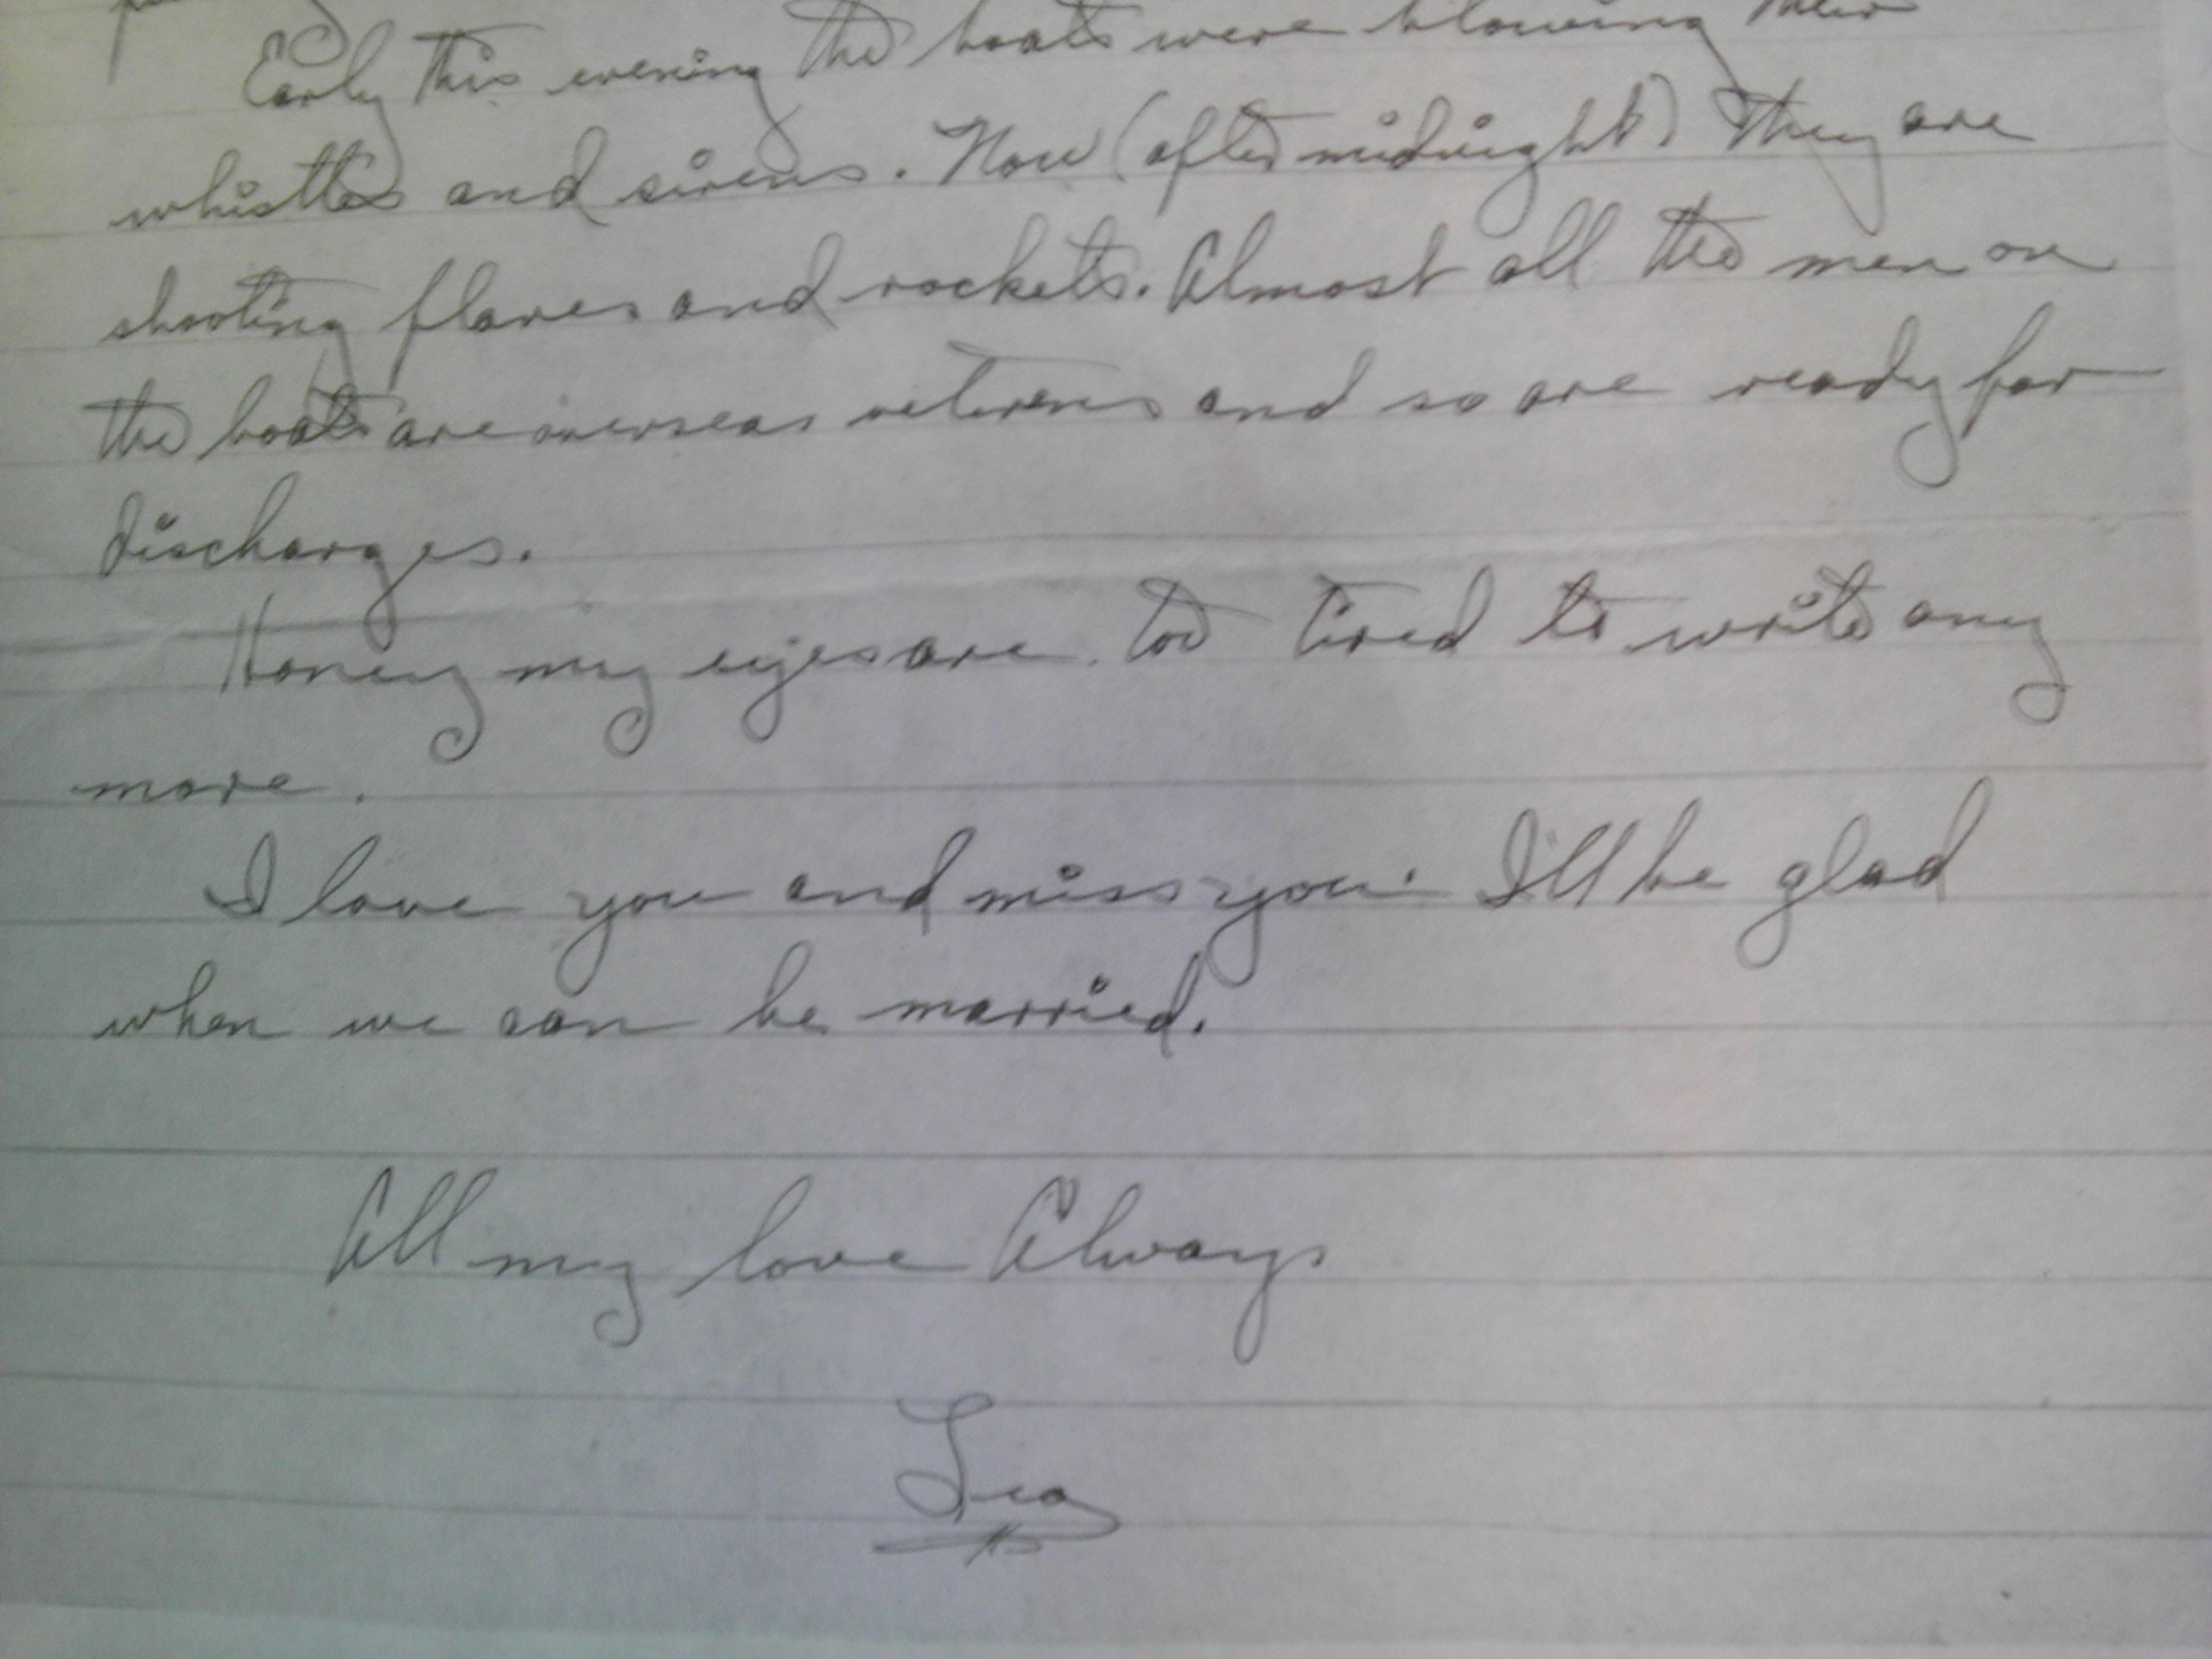 Early this evening the boats were blowing their
whistles and sirens. Now (after midnight) they are
shooting flares and rockets. Almost all the men on
the boats are overseas veterens and so are ready for
discharges.
Honey my eyes are too tired to write any
more.
I love you and miss you. I'll be glad
when we can be married.
All my love Always
Leo